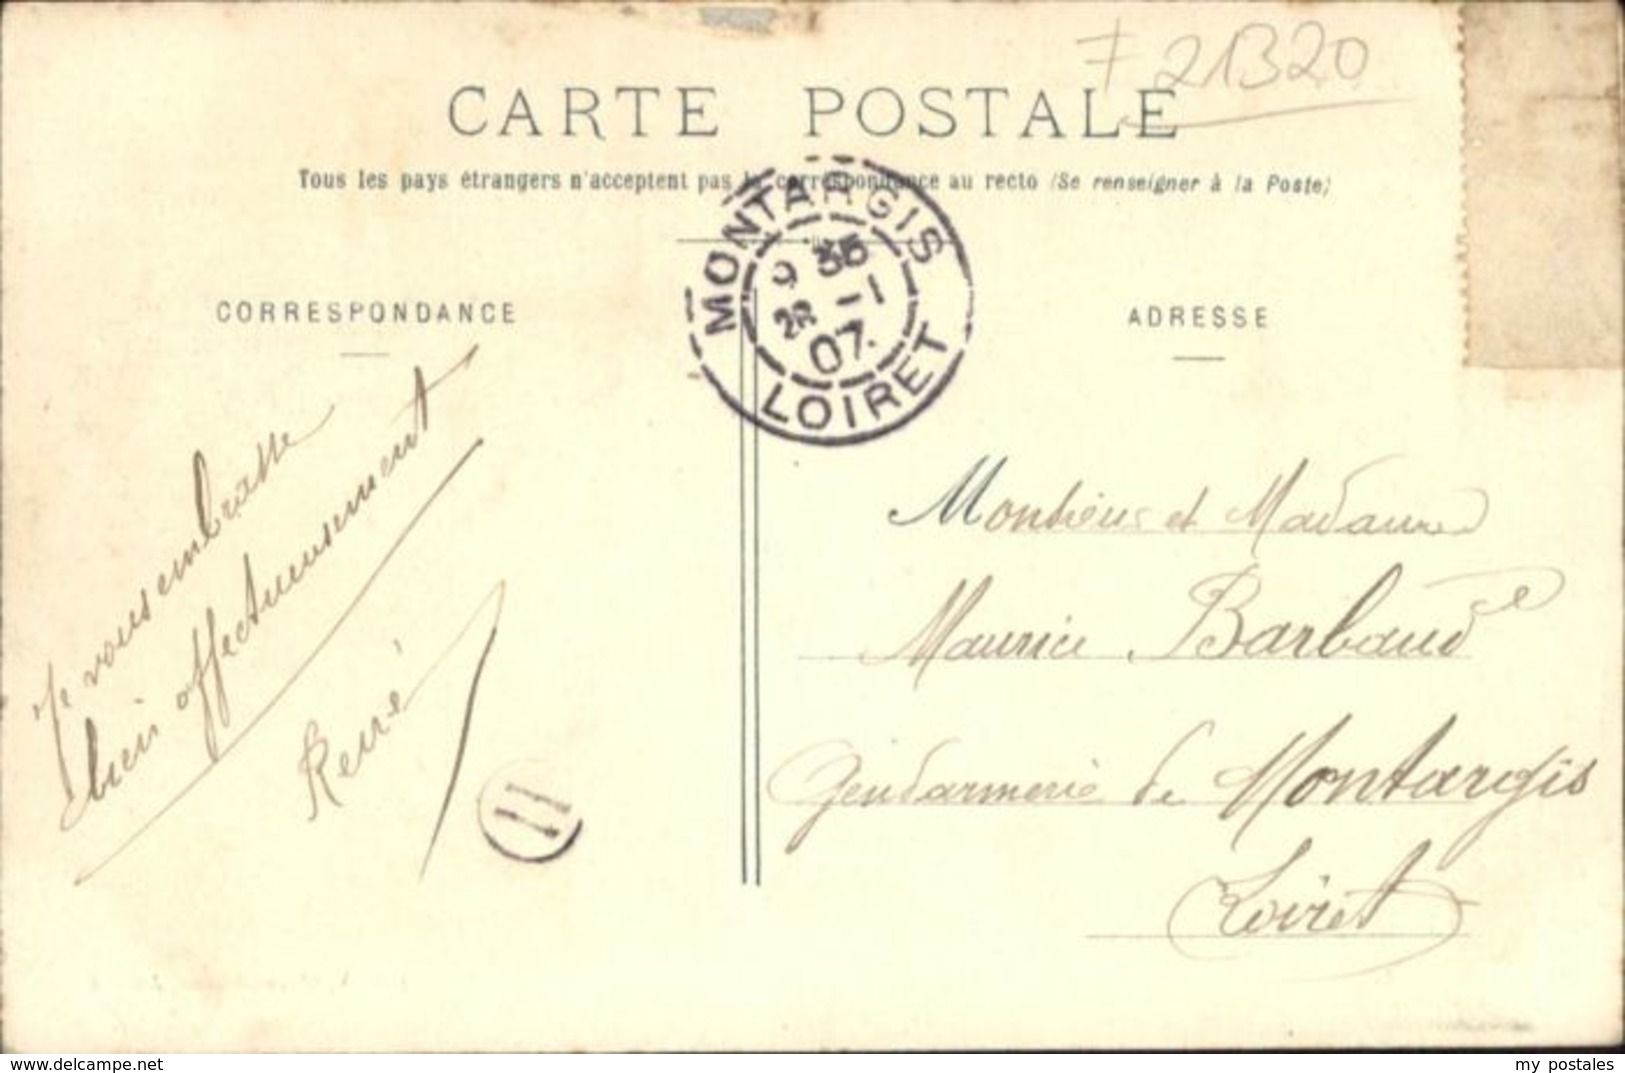 F 21320
CARTE POSTALE
Tous les pays étrangers n'acceptent pas la correspondance au recto (Se renseigner à la Poste)
MONTARGIS
9 35
28 -1
07
LOIRET
CORRESPONDANCE
ADRESSE
Je vous embrasse
bien affectueusement
René
11
Monsieur et Madame
Maurice Barbaud
Gendarmerie de Montargis
Loiret
delcampe.net
my postales